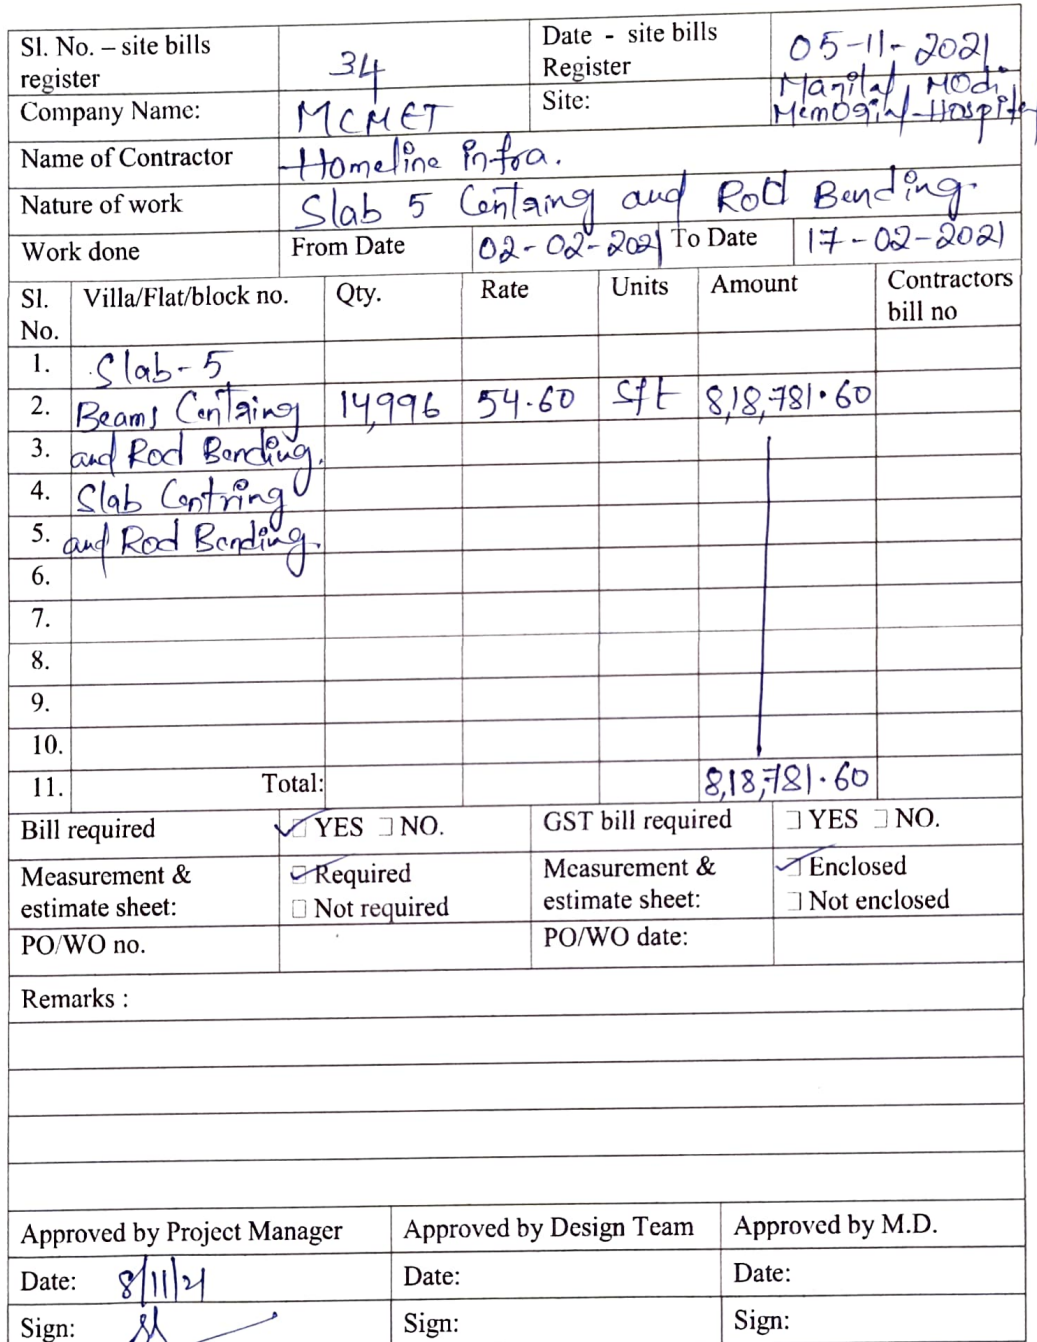 Sl. No. – site bills register 34 Date - site bills Register 05-11-2021
Company Name: MCMET Site: Manilal Modi Memorial Hospital
Name of Contractor Homeline infra.
Nature of work Slab 5 Centring and Rod Bending.
Work done From Date 02-02-2021 To Date 17-02-2021
Sl. No. Villa/Flat/block no. Qty. Rate Units Amount Contractors bill no
1. Slab-5
2. Beams Centring 14,996 54.60 Sft 8,18,781.60
3. and Rod Bending.
4. Slab Centring
5. and Rod Bending.
6.
7.
8.
9.
10.
11. Total: 8,18,781.60
Bill required YES NO. GST bill required YES NO.
Measurement & estimate sheet: Required Not required Measurement & estimate sheet: Enclosed Not enclosed
PO/WO no. PO/WO date:
Remarks :
Approved by Project Manager Approved by Design Team Approved by M.D.
Date: 8/11/21 Date: Date:
Sign: Sign: Sign: